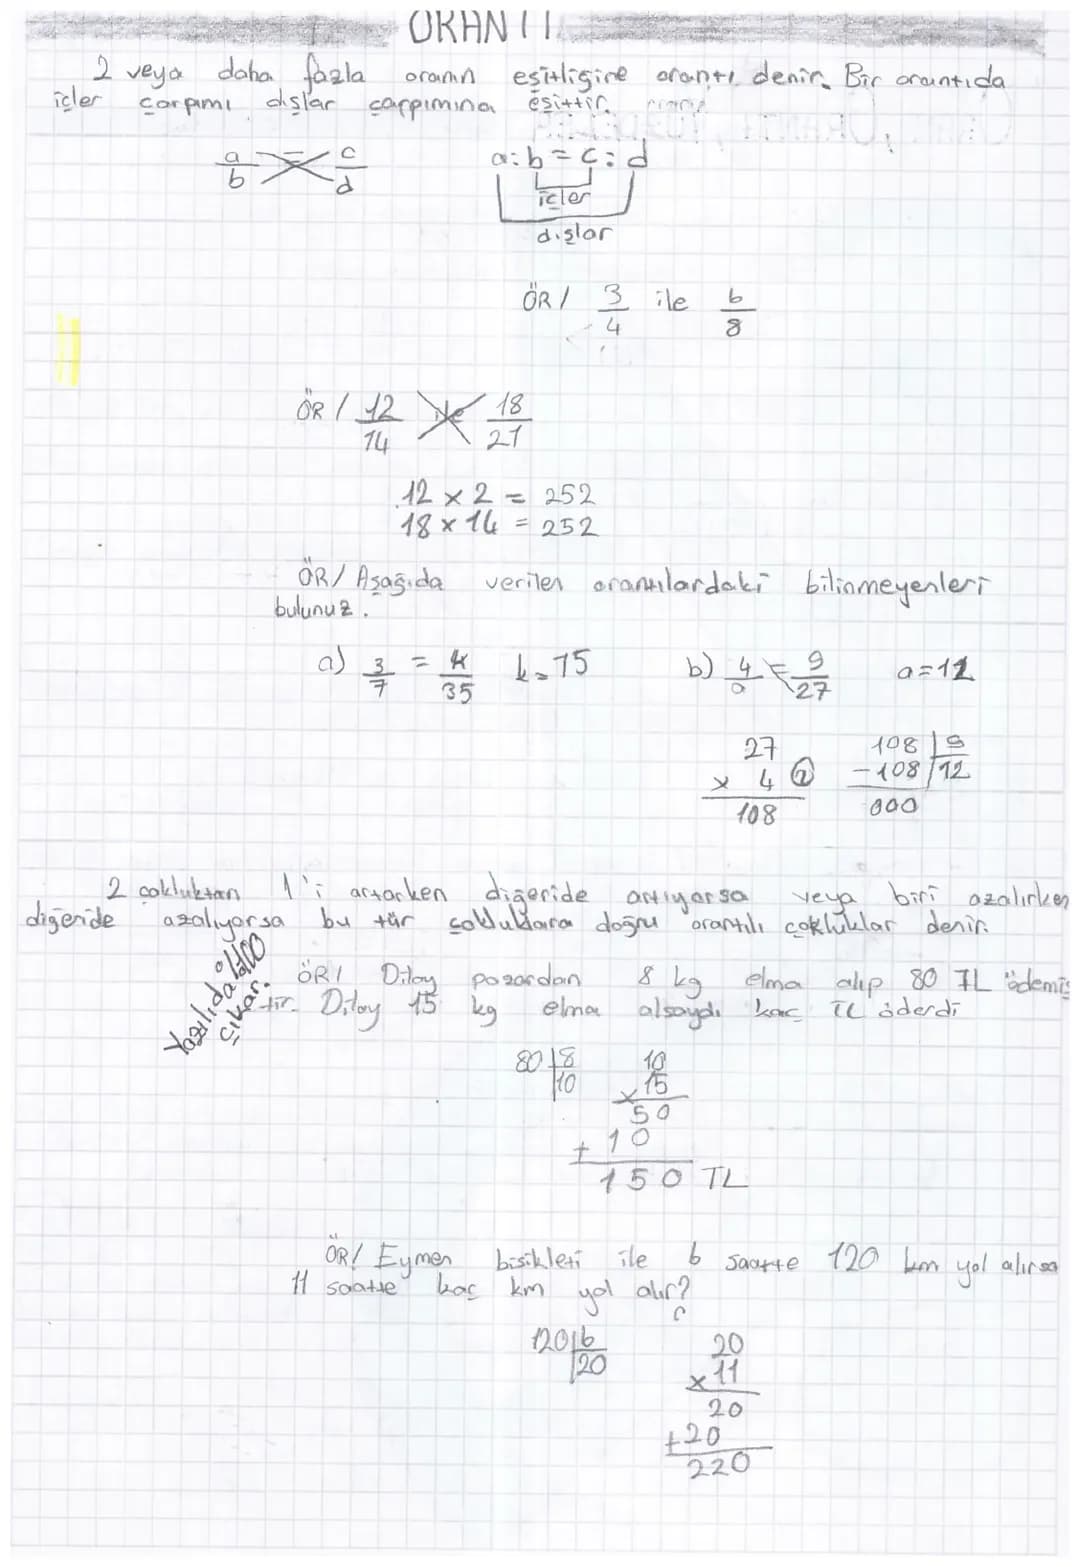 ORANTI
2 veya daha fazla oranın eşitliğine orantı denir. Bir orantıda
içler çarpımı dışlar çarpımına eşittir.
a/b = c/d
a:b = c:d
içler
dışlar
ÖR/ 3/4 ile 6/8
ÖR/ 12/14 ile 18/21
12 x 2 = 252
18 x 14 = 252
ÖR/ Aşağıda verilen orantılardaki bilinmeyenleri
bulunuz.
a) 3/7 = k/35 k=15 b) 4/a = 9/27 a=12
27 108 | 9
x 4 ② -108 | 12
108 000
2 çokluktan 1'i artarken diğeride artıyorsa veya biri azalırken
diğeride azalıyorsa bu tür çokluklara doğru orantılı çokluklar denir.
Yazılıda %100
çıkar.
ÖR/ Dilay pazardan 8 kg elma alıp 80 TL ödemiş
tir. Dilay 15 kg elma alsaydı kaç TL öderdi
80 | 8 10
10 x 15
50
+ 10
150 TL
ÖR/ Eymen bisikleti ile 6 saatte 120 km yol alırsa
11 saatte kaç km yol alır?
120 | 6 20
20 x 11
20
+20
220